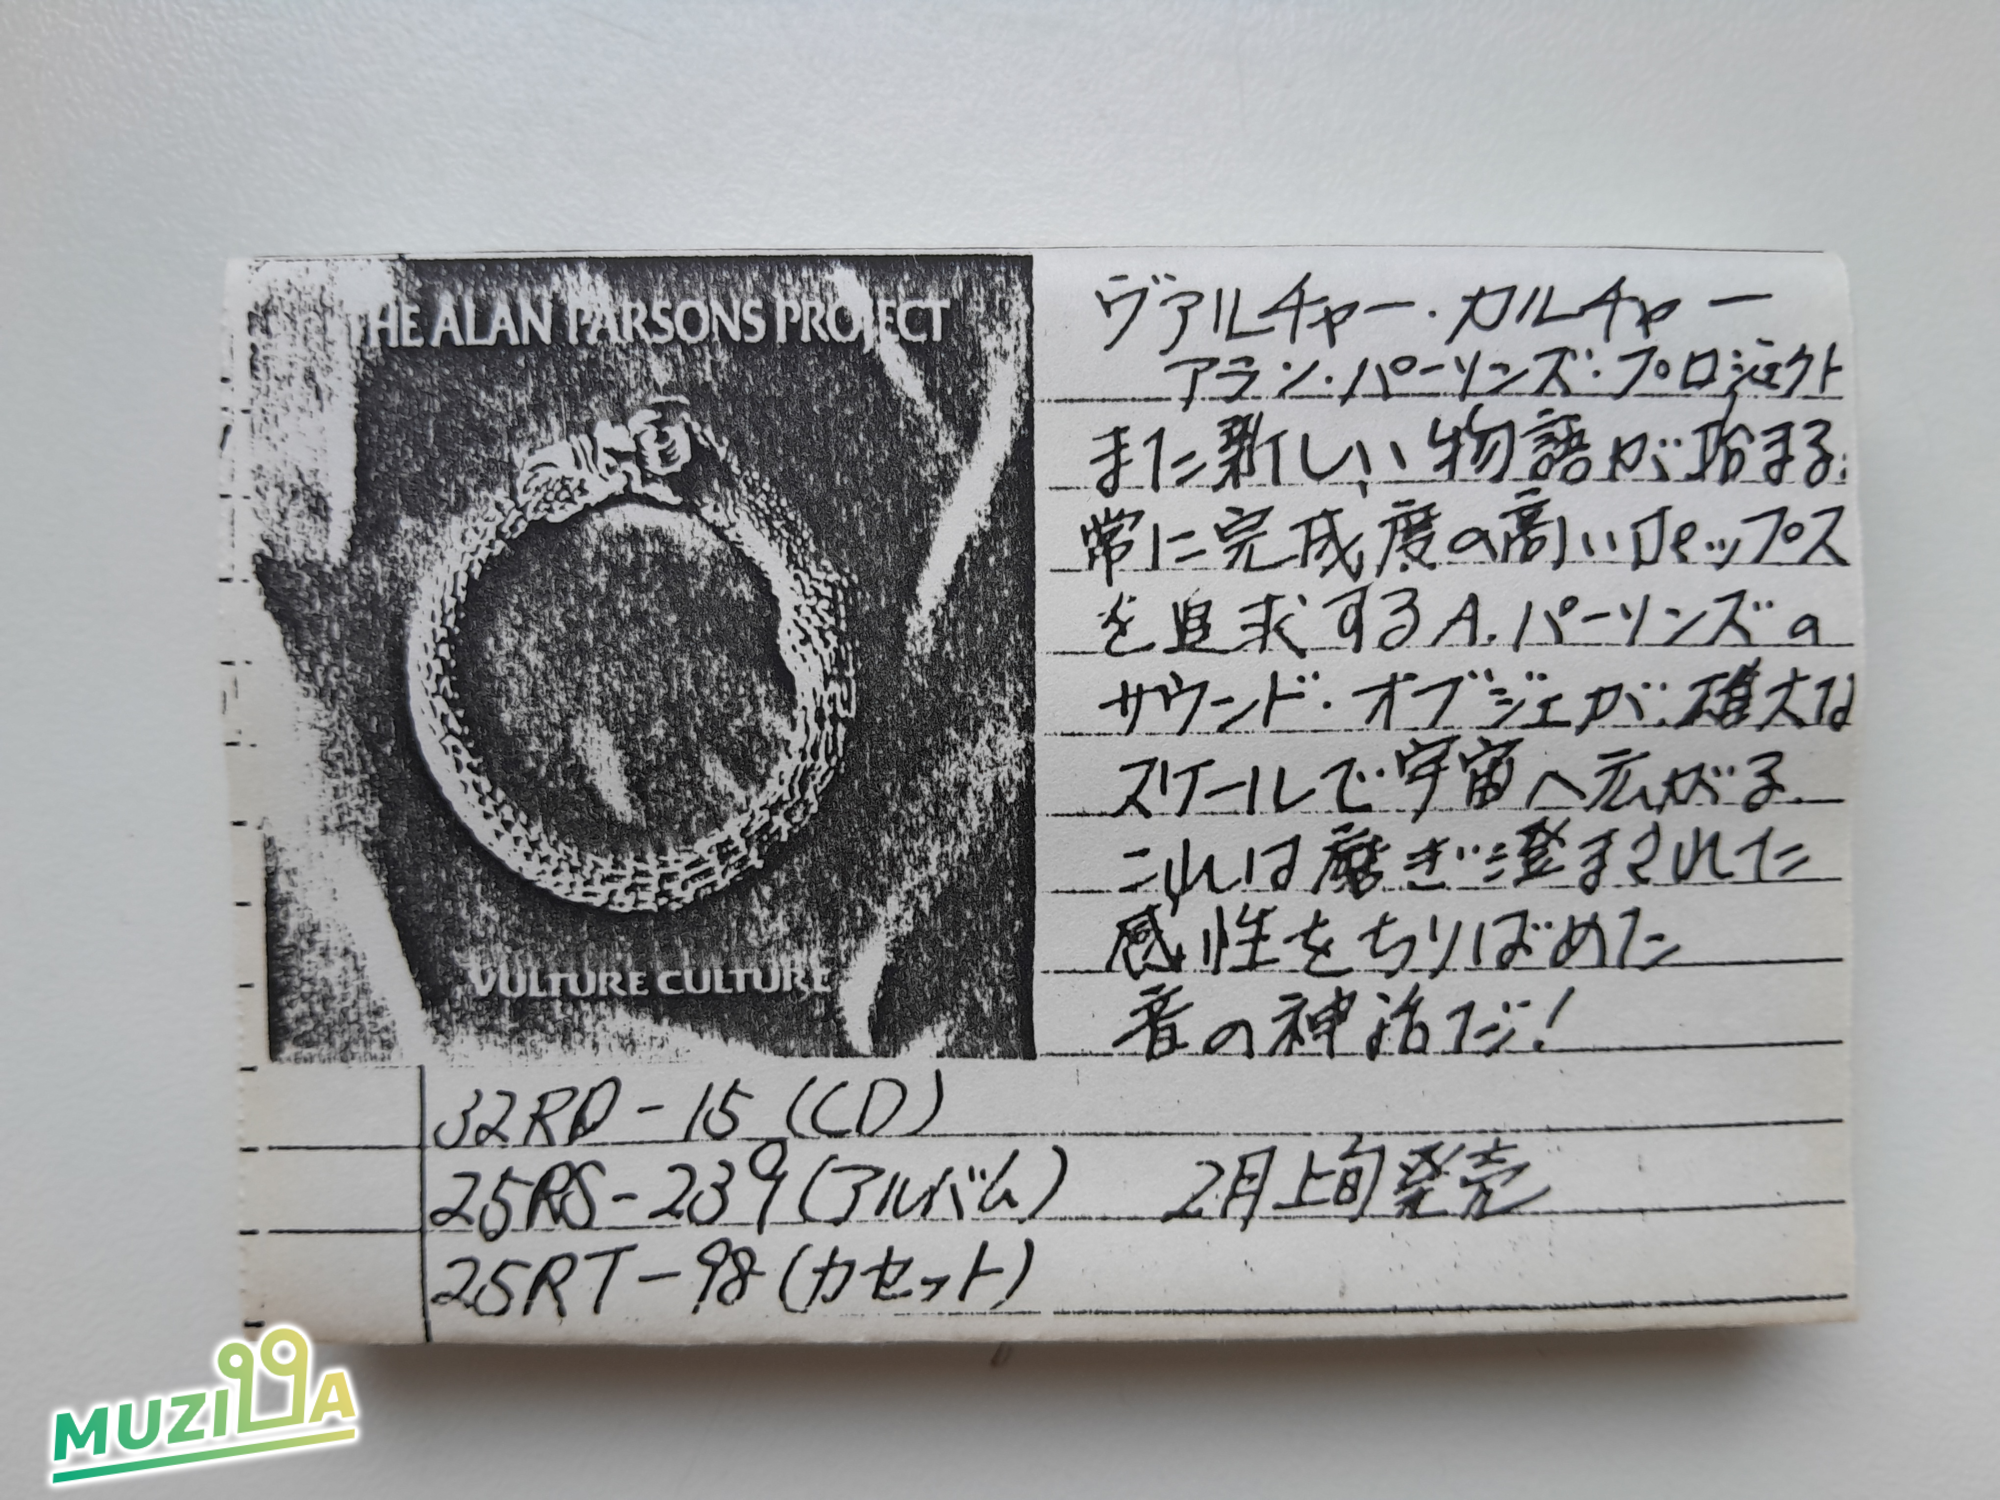 THE ALAN PARSONS PROJECT
VULTURE CULTURE
ヴァルチャー・カルチャー
アラン・パーソンズ・プロジェクト
また新しい物語が始まる。
常に完成度の高いポップス
を追求するA.パーソンズの
サウンド・オブジェが、雄大な
スケールで宇宙へ広がる。
これは磨ぎ澄まされた
感性をちりばめた
音の神話だ!
32RD-15(CD)
25RS-239(アルバム) 2月上旬発売
25RT-98(カセット)
MUZILLA